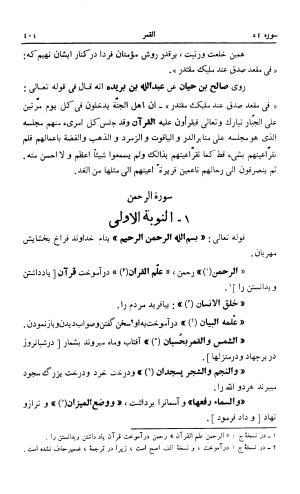 سوره ٥٤ القمر ٤٠١
همین خلعت ورتبت، برقدر روش مؤمنان فردا در کنار ایشان نهیم که:
« فی مقعد صدق عند ملیک مقتدر ».
روی صالح بن حیان عن عبدالله بن بریده انه قال فی قوله تعالی:
« فی مقعد صدق عند ملیک مقتدر » ـ ان اهل الجنة یدخلون فی کل یوم مرّتین
علی الجبّار تبارک وتعالی فیقرأون علیه القرآن وقد جلس کل امرىء منهم مجلسه
الذی هو مجلسه علی منابر الدر و الیاقوت و الزمرد و الذهب والفضة باعمالهم فلم
تقر اعینهم بشیء قط کما تقر اعینهم بذالک ولم یسمعوا شیئاً اعظم و لا احسن منه.
ثم ینصرفون الی رحالهم ناعمین قریرة اعینهم الی مثلها من الغد.
سورة الرحمن
١ ـ النوبة الاولی
قوله تعالی: « بسم الله الرحمن الرحیم » بنام خداوند فراخ بخشایش
مهربان.
« الرحمن(١) » رحمن، « علّم القرآن(٢) » درآموخت قرآن [ یادداشتن
و بدانستن را ].
« خلق الانسان(٣) » بیافرید مردم را.
« علمه البیان(٤) » درآموخت به او سخن گفتن وصواب دیدن و باز نمودن.
« الشمس والقمر بحسبان(٥) » آفتاب وماه میروند بشمار [ در شبانروز
در برجها و درمنزلها ].
« والنجم والشجر یسجدان(٦) » ودرخت خرد ودرخت بزرگ سجود
میبرند هردو الله را.
« والسماء رفعها » و آسمان را برداشت، « ووضع المیزان(٧) » و ترازو
نهاد [ و داد فرمود ].
١ ـ در نسخهٔ ج: « الرحمن علم القرآن » رحمن درآموخت قرآن یاد داشتن وبدانستن را.
٢ ـ در نسخهٔ ج درآموخت ، و نسخهٔ الف اصح است، زیرا در ترجمهٔ ، ضمیر حذف نشده است.